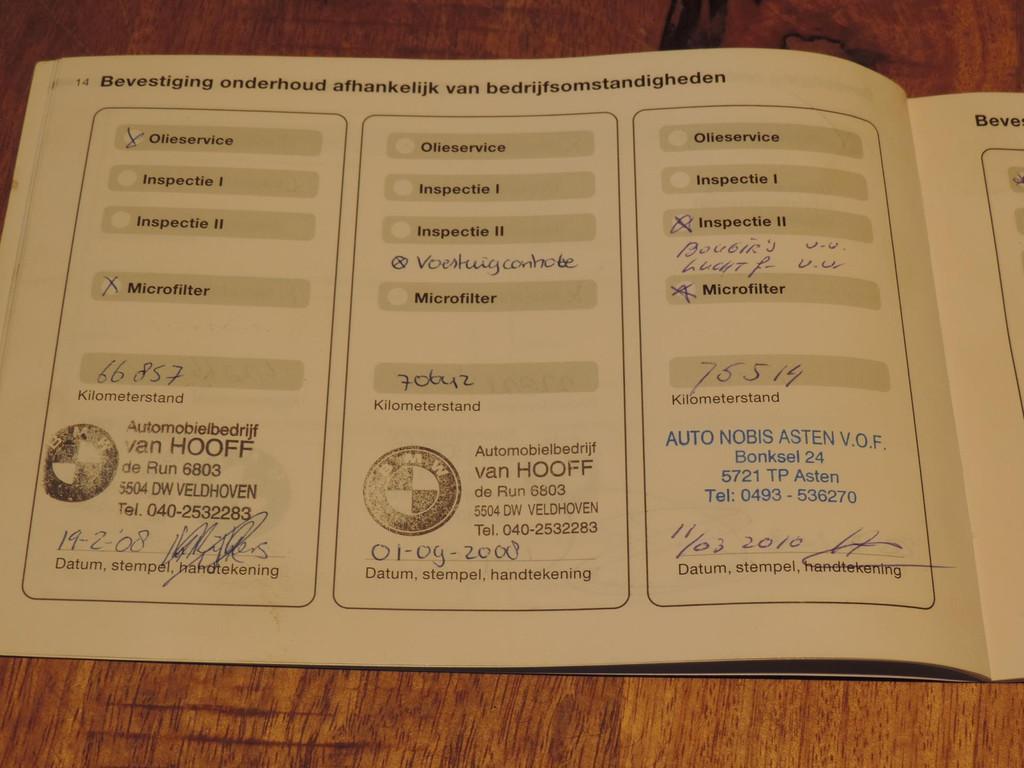 14 Bevestiging onderhoud afhankelijk van bedrijfsomstandigheden
X Olieservice
Inspectie I
Inspectie II
X Microfilter
66857
Kilometerstand
Automobielbedrijf
van HOOFF
de Run 6803
5504 DW VELDHOVEN
Tel. 040-2532283
19-2-'08
Datum, stempel, handtekening
Olieservice
Inspectie I
Inspectie II
⊗ Voertuigcontrole
Microfilter
Kilometerstand
BMW
Automobielbedrijf
van HOOFF
de Run 6803
5504 DW VELDHOVEN
Tel. 040-2532283
01-09-2008
Datum, stempel, handtekening
Olieservice
Inspectie I
X Inspectie II
BOUGIR'S v.v.
LUCHT f- v.v
X Microfilter
75514
Kilometerstand
AUTO NOBIS ASTEN V.O.F.
Bonksel 24
5721 TP Asten
Tel: 0493 - 536270
11/03 2010
Datum, stempel, handtekening
Beves